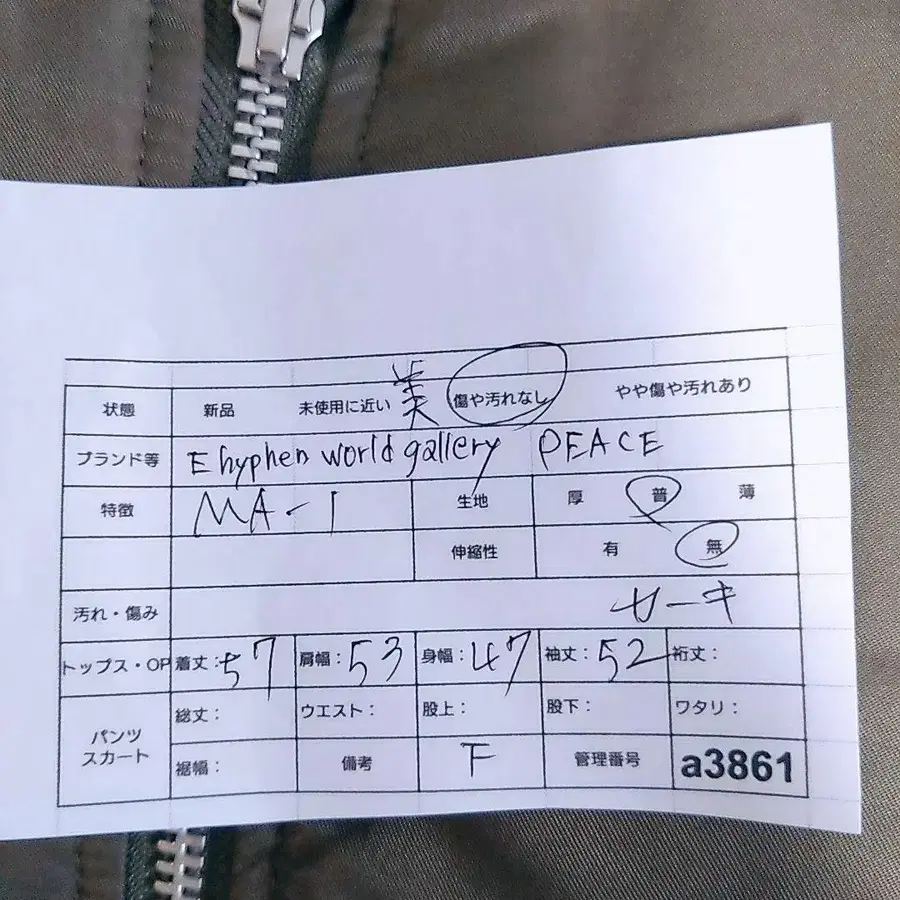 状態 新品 未使用に近い 美 傷や汚れなし やや傷や汚れあり
ブランド等 E hyphen world gallery PEACE
特徴 MA-1 生地 厚 普 薄
伸縮性 有 無
汚れ・傷み カーキ
トップス・OP 着丈:57 肩幅:53 身幅:47 袖丈:52 裄丈:
パンツ スカート 総丈: ウエスト: 股上: 股下: ワタリ:
裾幅: 備考 下 管理番号 a3861